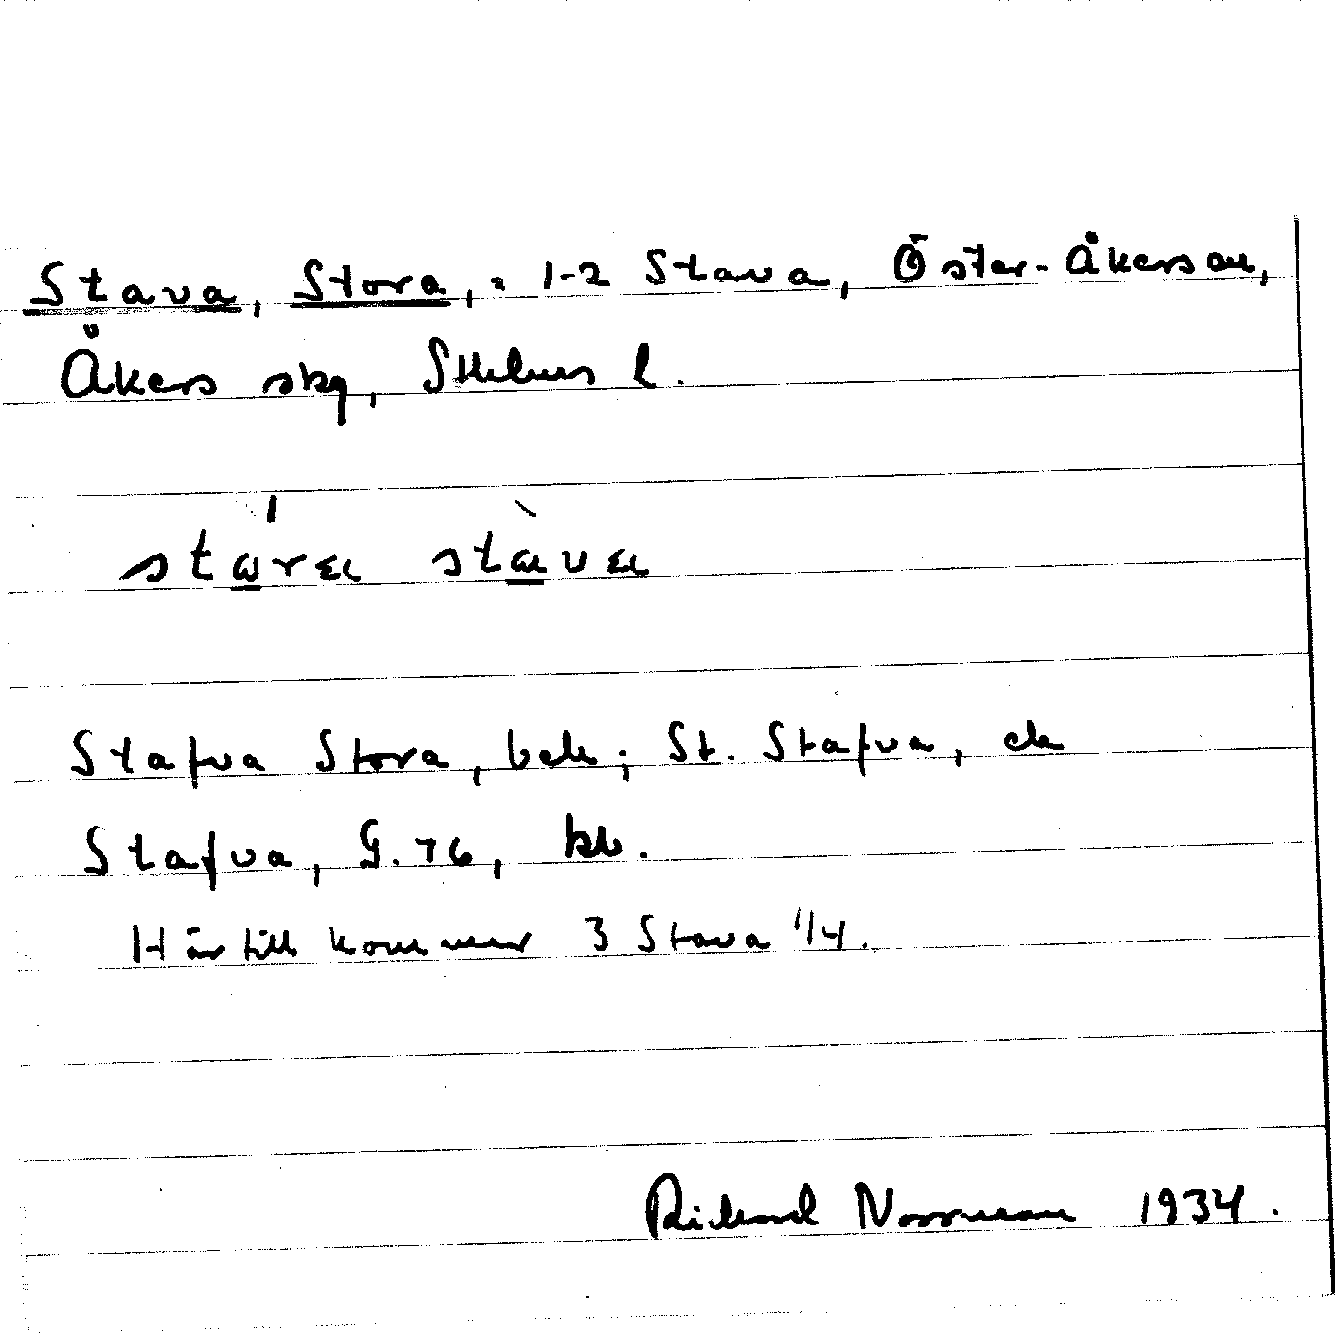 Stava, Stora, = 1-2 Stava, Öster-Åkers sn,
Åkers skg, Sthlms l.
Stafva Stora, bek; St. Stafva, ek
Stafva, G. 76, kb.
Härtill kommer 3 Stava 1/4.
Rickard Norrman 1934.